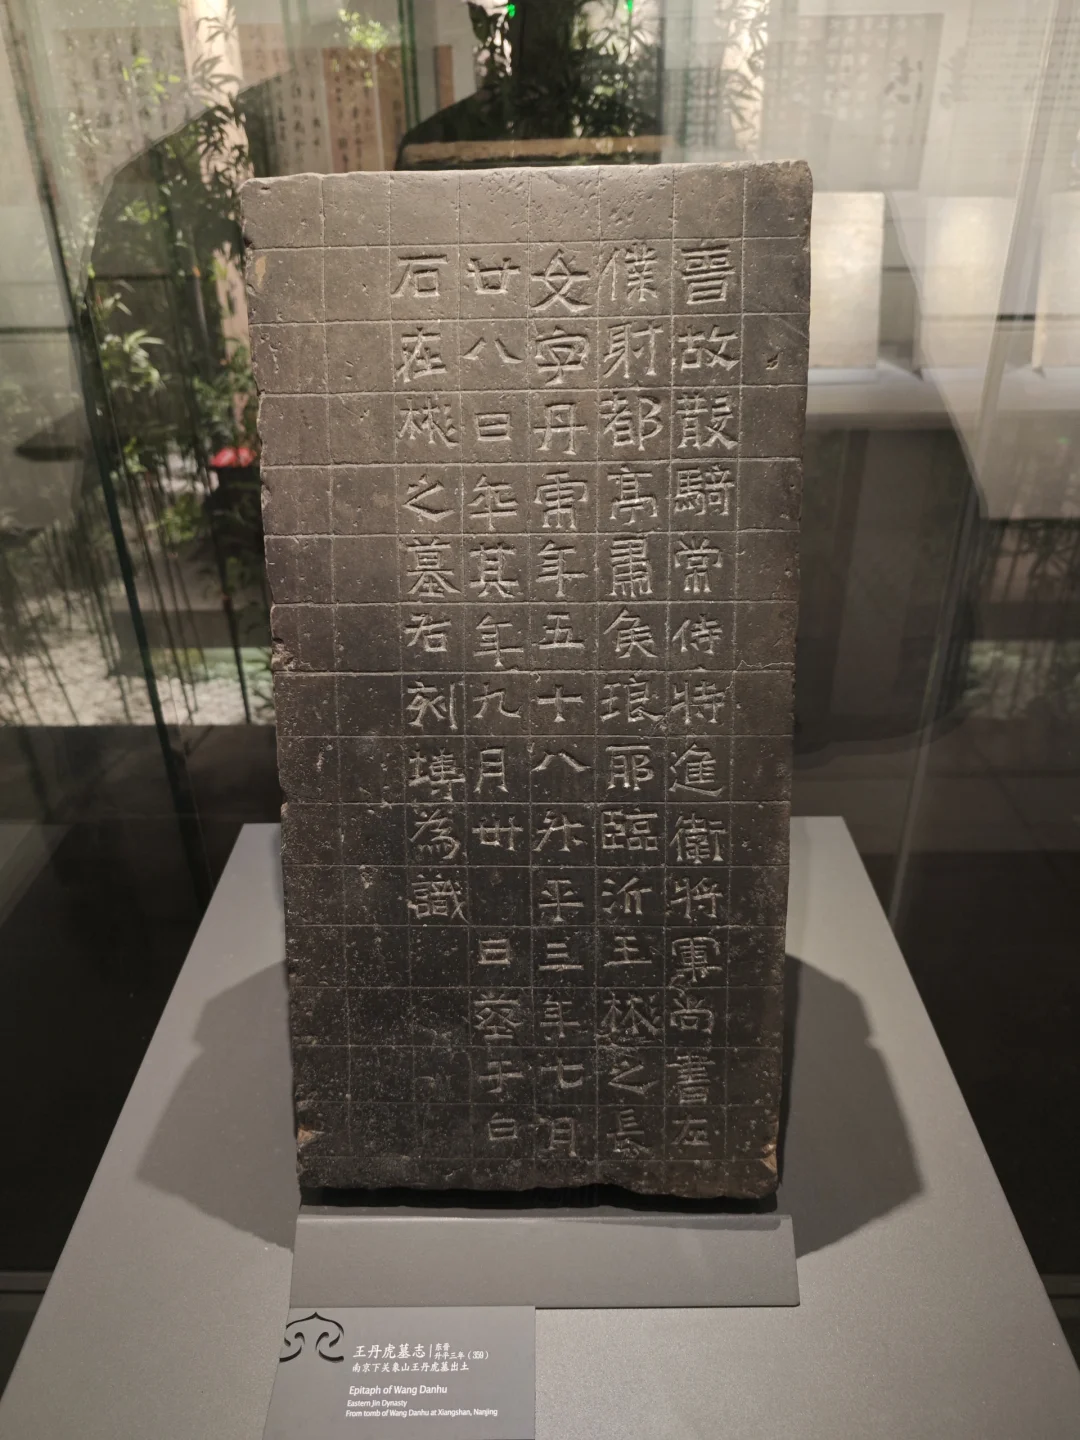 晉故散騎常侍特進衛將軍尚書左
僕射都亭肅侯琅耶臨沂王彬之長
女字丹虎年五十八升平三年七月
廿八日卒其年九月卅日葬于白
石在彬之墓右刻塼為識
王丹虎墓志
东晋
升平三年（359）
南京下关象山王丹虎墓出土
Epitaph of Wang Danhu
Eastern Jin Dynasty
From tomb of Wang Danhu at Xiangshan, Nanjing